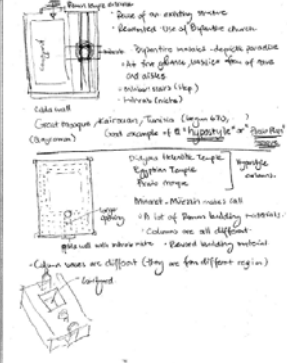 Roman temple entrance
• Reuse of an existing structure
• Remnants Use of Byzantine church
courtyard
• Byzantine mosaics - depicts paradise
• At first glance, basilica form of nave
and aisles
• Minbar stairs (step)
• Mihrab (niche)
Qibla wall
Great mosque, Kairouan, Tunisia (begun 670,
Good example of a "hypostyle" or
Egyptian Temple
Arab mosque
Hypostyle
columns.
Minaret - Muezzin makes call
• A lot of Roman building materials.
• Columns are all different
large
opening
qibla wall with mihrab niche
• Reused building material
• Column bases are different (they are from different region)
courtyard